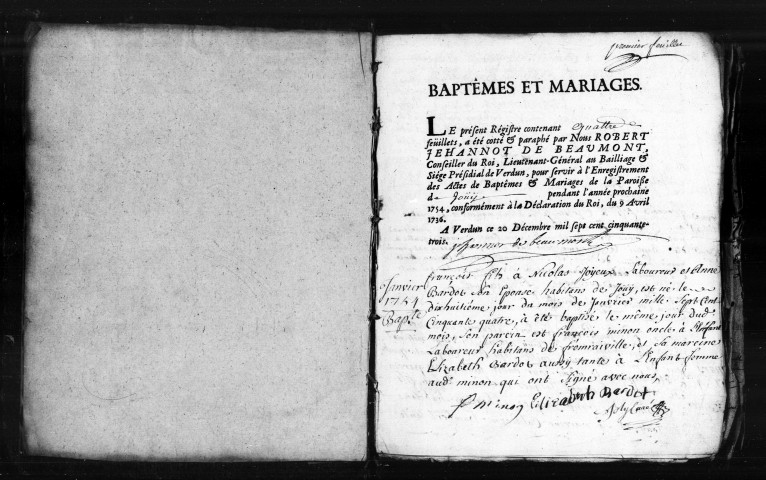 premier feuillet
BAPTÊMES ET MARIAGES.
LE présent Régistre contenant quattre
feüillets, a été cotté & paraphé par Nous ROBERT
JEHANNOT DE BEAUMONT,
Conseiller du Roi, Lieutenant-Général au Bailliage &
Siége Présidial de Verdun, pour servir à l'Enregistrement
des Actes de Baptêmes & Mariages de la Paroisse
de Joüy pendant l'année prochaine
1754, conformément à la Déclaration du Roi, du 9 Avril
1736.
A Verdun ce 20 Décembre mil sept cent cinquante-
trois. Jehannot de beaumont
Janvier
1754
Bapt.
françois fils à Nicolas Joyeux Laboureur et Anne
Bardot son Epouse habitans de Joüy, est né le
dixhuitiéme jour du mois de Janvier mille Sept Cent
Cinquante quatre, à été baptisé le même jour dud.
mois, son parein est françois minon oncle à l'Enfant
Laboureur habitans de fromraiville, et sa mareine
Elizabeth Bardot aussy tante à l'Enfant femme
aud. minon qui ont signé avec nous,
f minon Elizabeth Bardot
Joly Curé